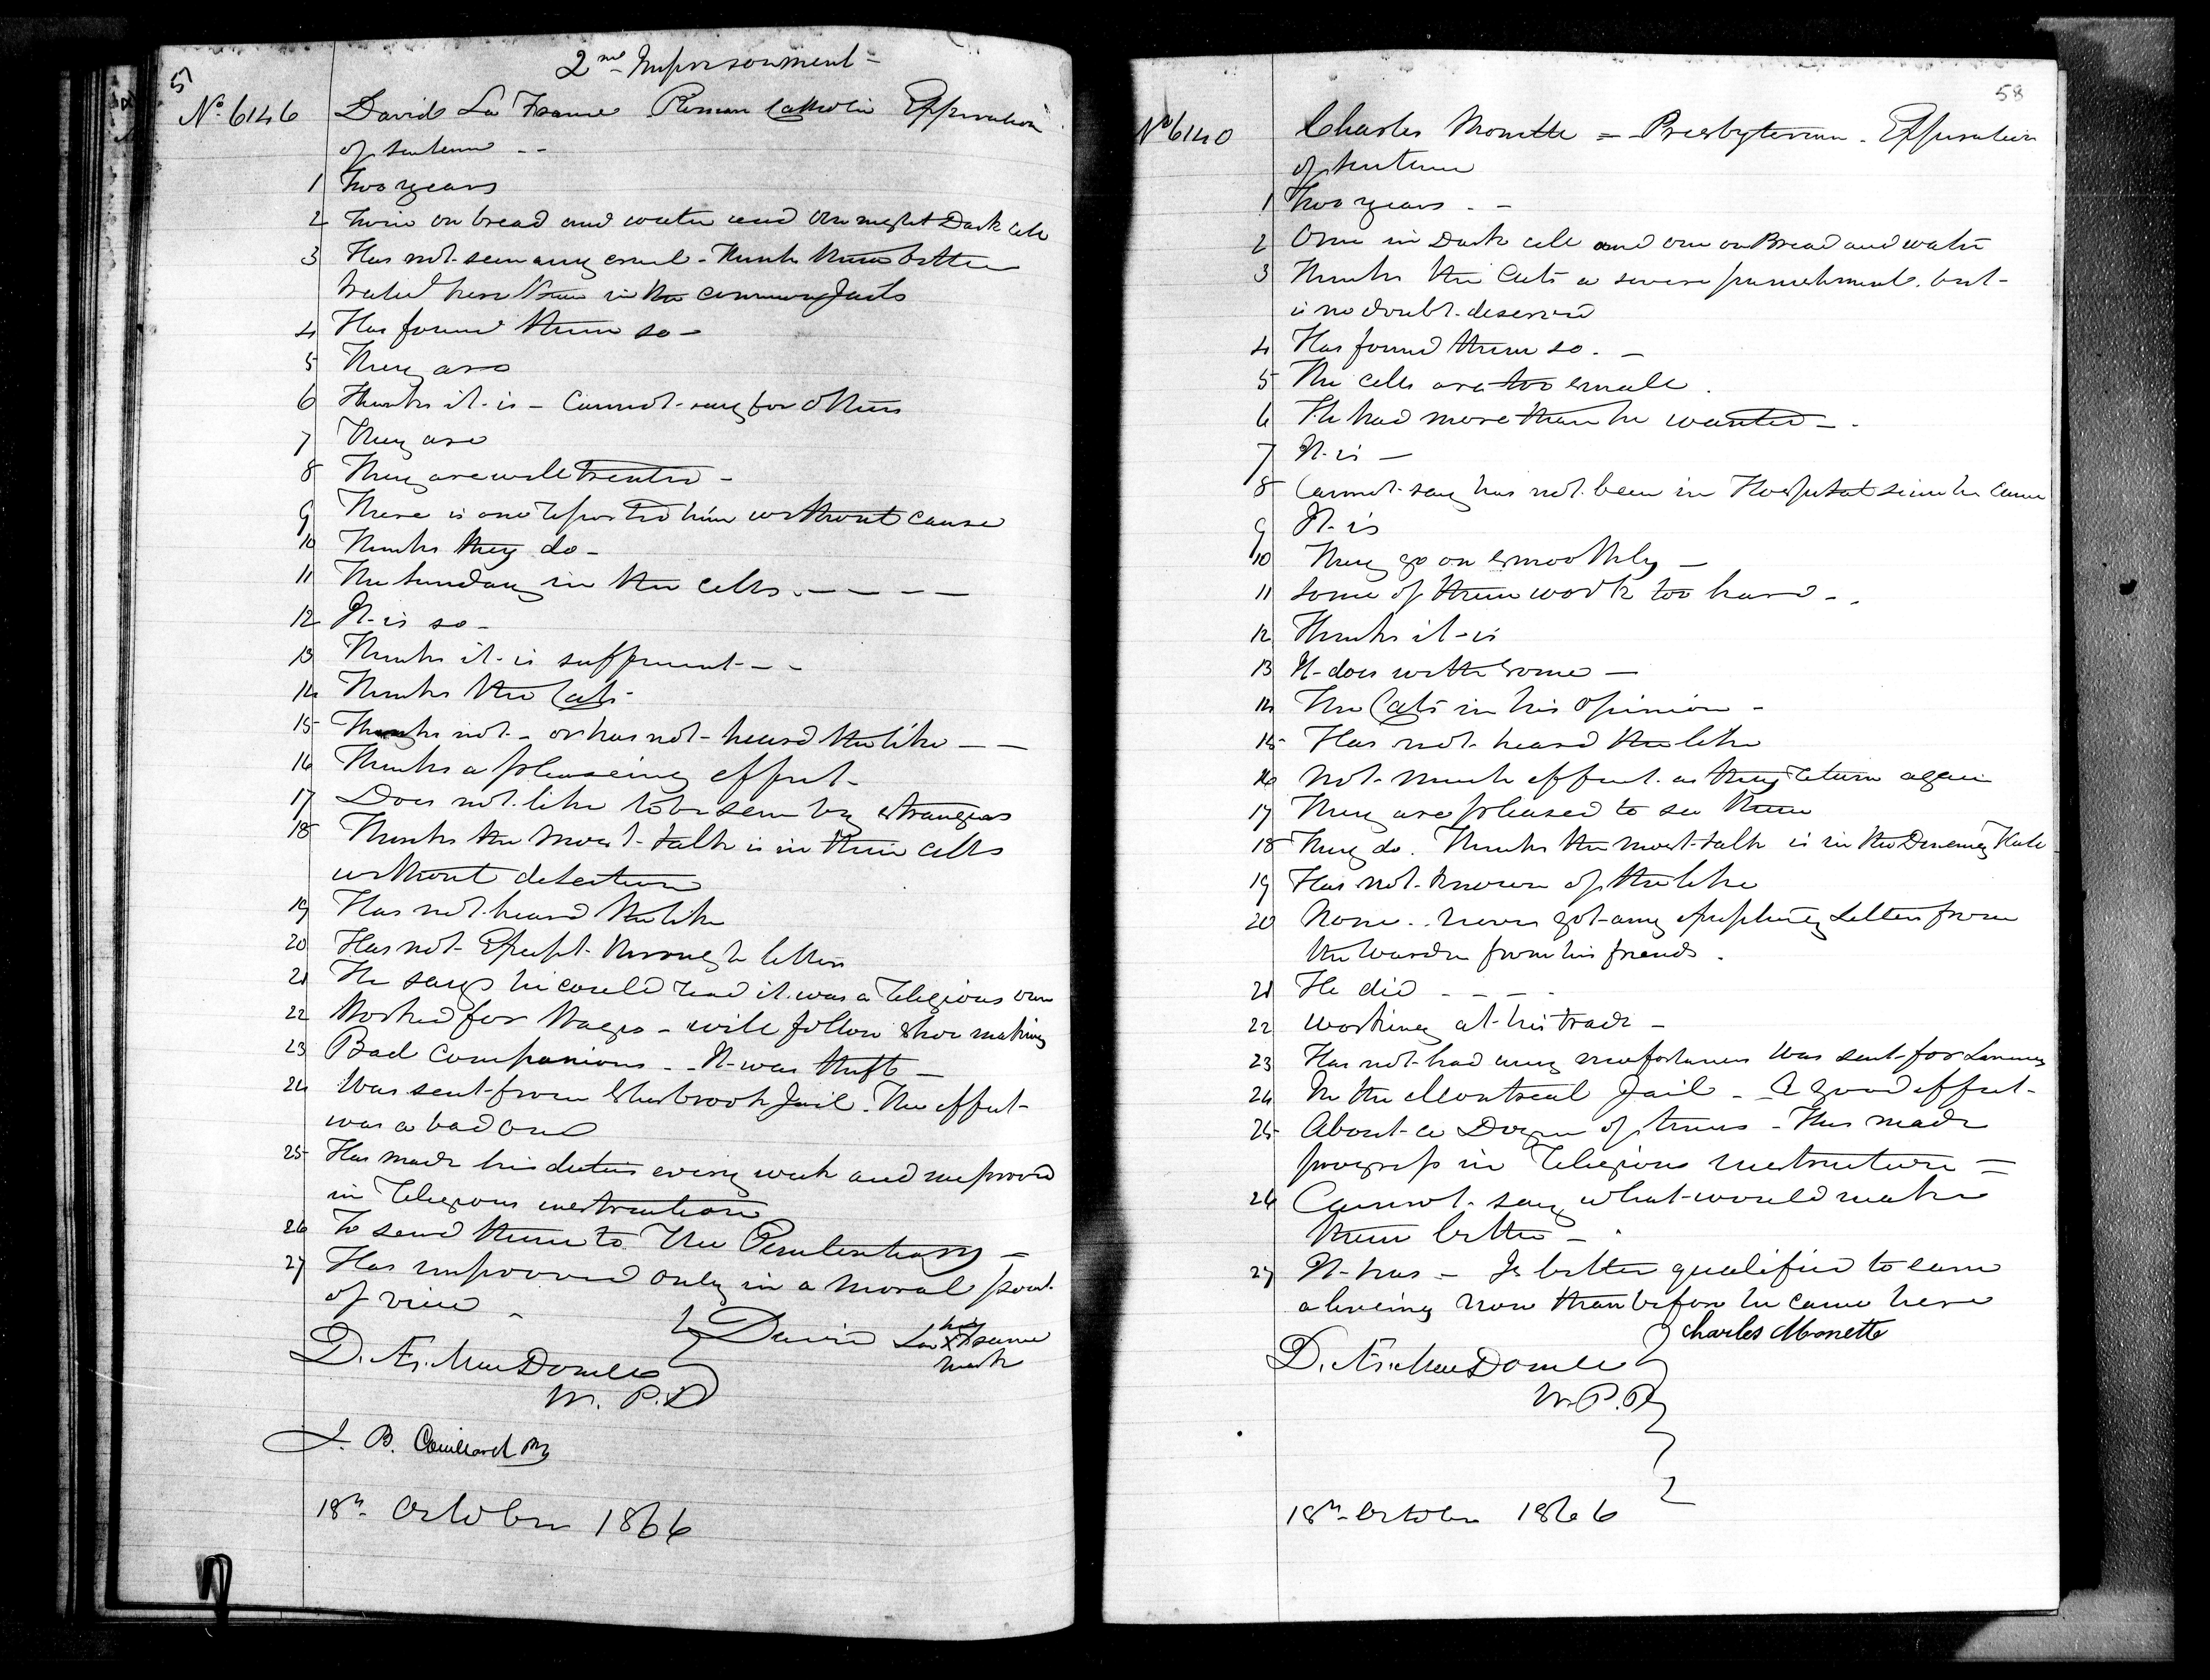 5
2nd Imprisonment -
No. 6146 David La Frame Roman Catholic Expiration
of sentence --
1 Two years
2 Twice on bread and water and one night Dark cell
3 Has not seen any cruel - Thinks them better
treated here than in the common Jails
4 Has found them so -
5 They are
6 Thinks it is - Cannot say for others
7 They are
8 They are well treated -
9 There is one reported him without cause
10 Thinks they do -
11 The Sunday in the cells. - - - -
12 It is so -
13 Thinks it is sufficient - -
14 Thinks the Cats -
15 Thinks not - or has not heard the like - -
16 Thinks a pleaseing effect -
17 Does not like to be seen by strangers
18 Thinks the most talk is in their cells
without detection
19 Has not heard the like
20 Has not Except through letters
21 He says he could read it was a religious one
22 Worked for Wages - will follow shoe making
23 Bad Companions - It was theft -
24 Was sent from Sherbrook Jail. The effect
was a bad one
25 Has made his duties every week and improved
in religious instruction
26 To send them to The Penitentiary -
27 Has improved only in a moral point
of view -
David La Frame
his
X
mark
D. Æ. MacDonell
W. P. P.
J. B. Couillard
18th October 1866
58
No 6140 Charles Monette = Presbyterian - Expiration
of sentence
1 Two years - -
2 Once in Dark cell and one on Bread and water
3 Thinks the Cats a severe punishment. but
is no doubt deserved
4 Has found them so. -
5 The cells are too small.
6 He had more than he wanted - .
7 It is -
8 Cannot say has not been in Hospital since he came
9 It is
10 They go on smoothly -
11 Some of them work too hard - .
12 Thinks it is
13 It does with some -
14 The Cats in his opinion -
15 Has not heard the like
16 Not much effect as they return again
17 They are pleased to see them
18 They do. Thinks the most talk is in the Dineing Hall
19 Has not known of the like
20 None - never got any Letters from
the Warden from his friends.
21 He did - - - -
22 Working at his trade -
23 Has not had any misfortunes Was sent for Larceny
24 In the Montreal Jail - A good effect -
25 About a Dozen of times - Has made
progress in religious instruction =
26 Cannot say what would make
them better - .
27 It has - Is better qualified to earn
a liveing now than before he came here
Charles Monette
D. Æ. MacDonell
W. P. P.
18th October 1866